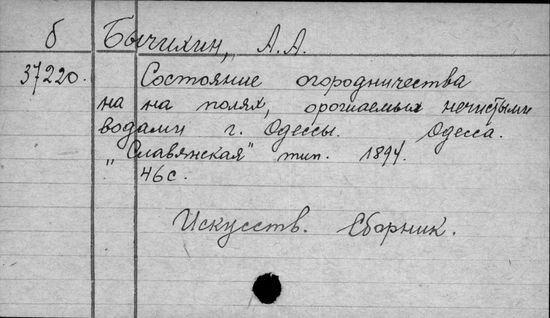 б Бычихин, А.А.
37220. Состояние огородничества
на на полях, орошаемых нечистыми
водами г. Одессы. Одесса.
„Славянская" тип. 1894.
46 с.
Искусств. Сборник.